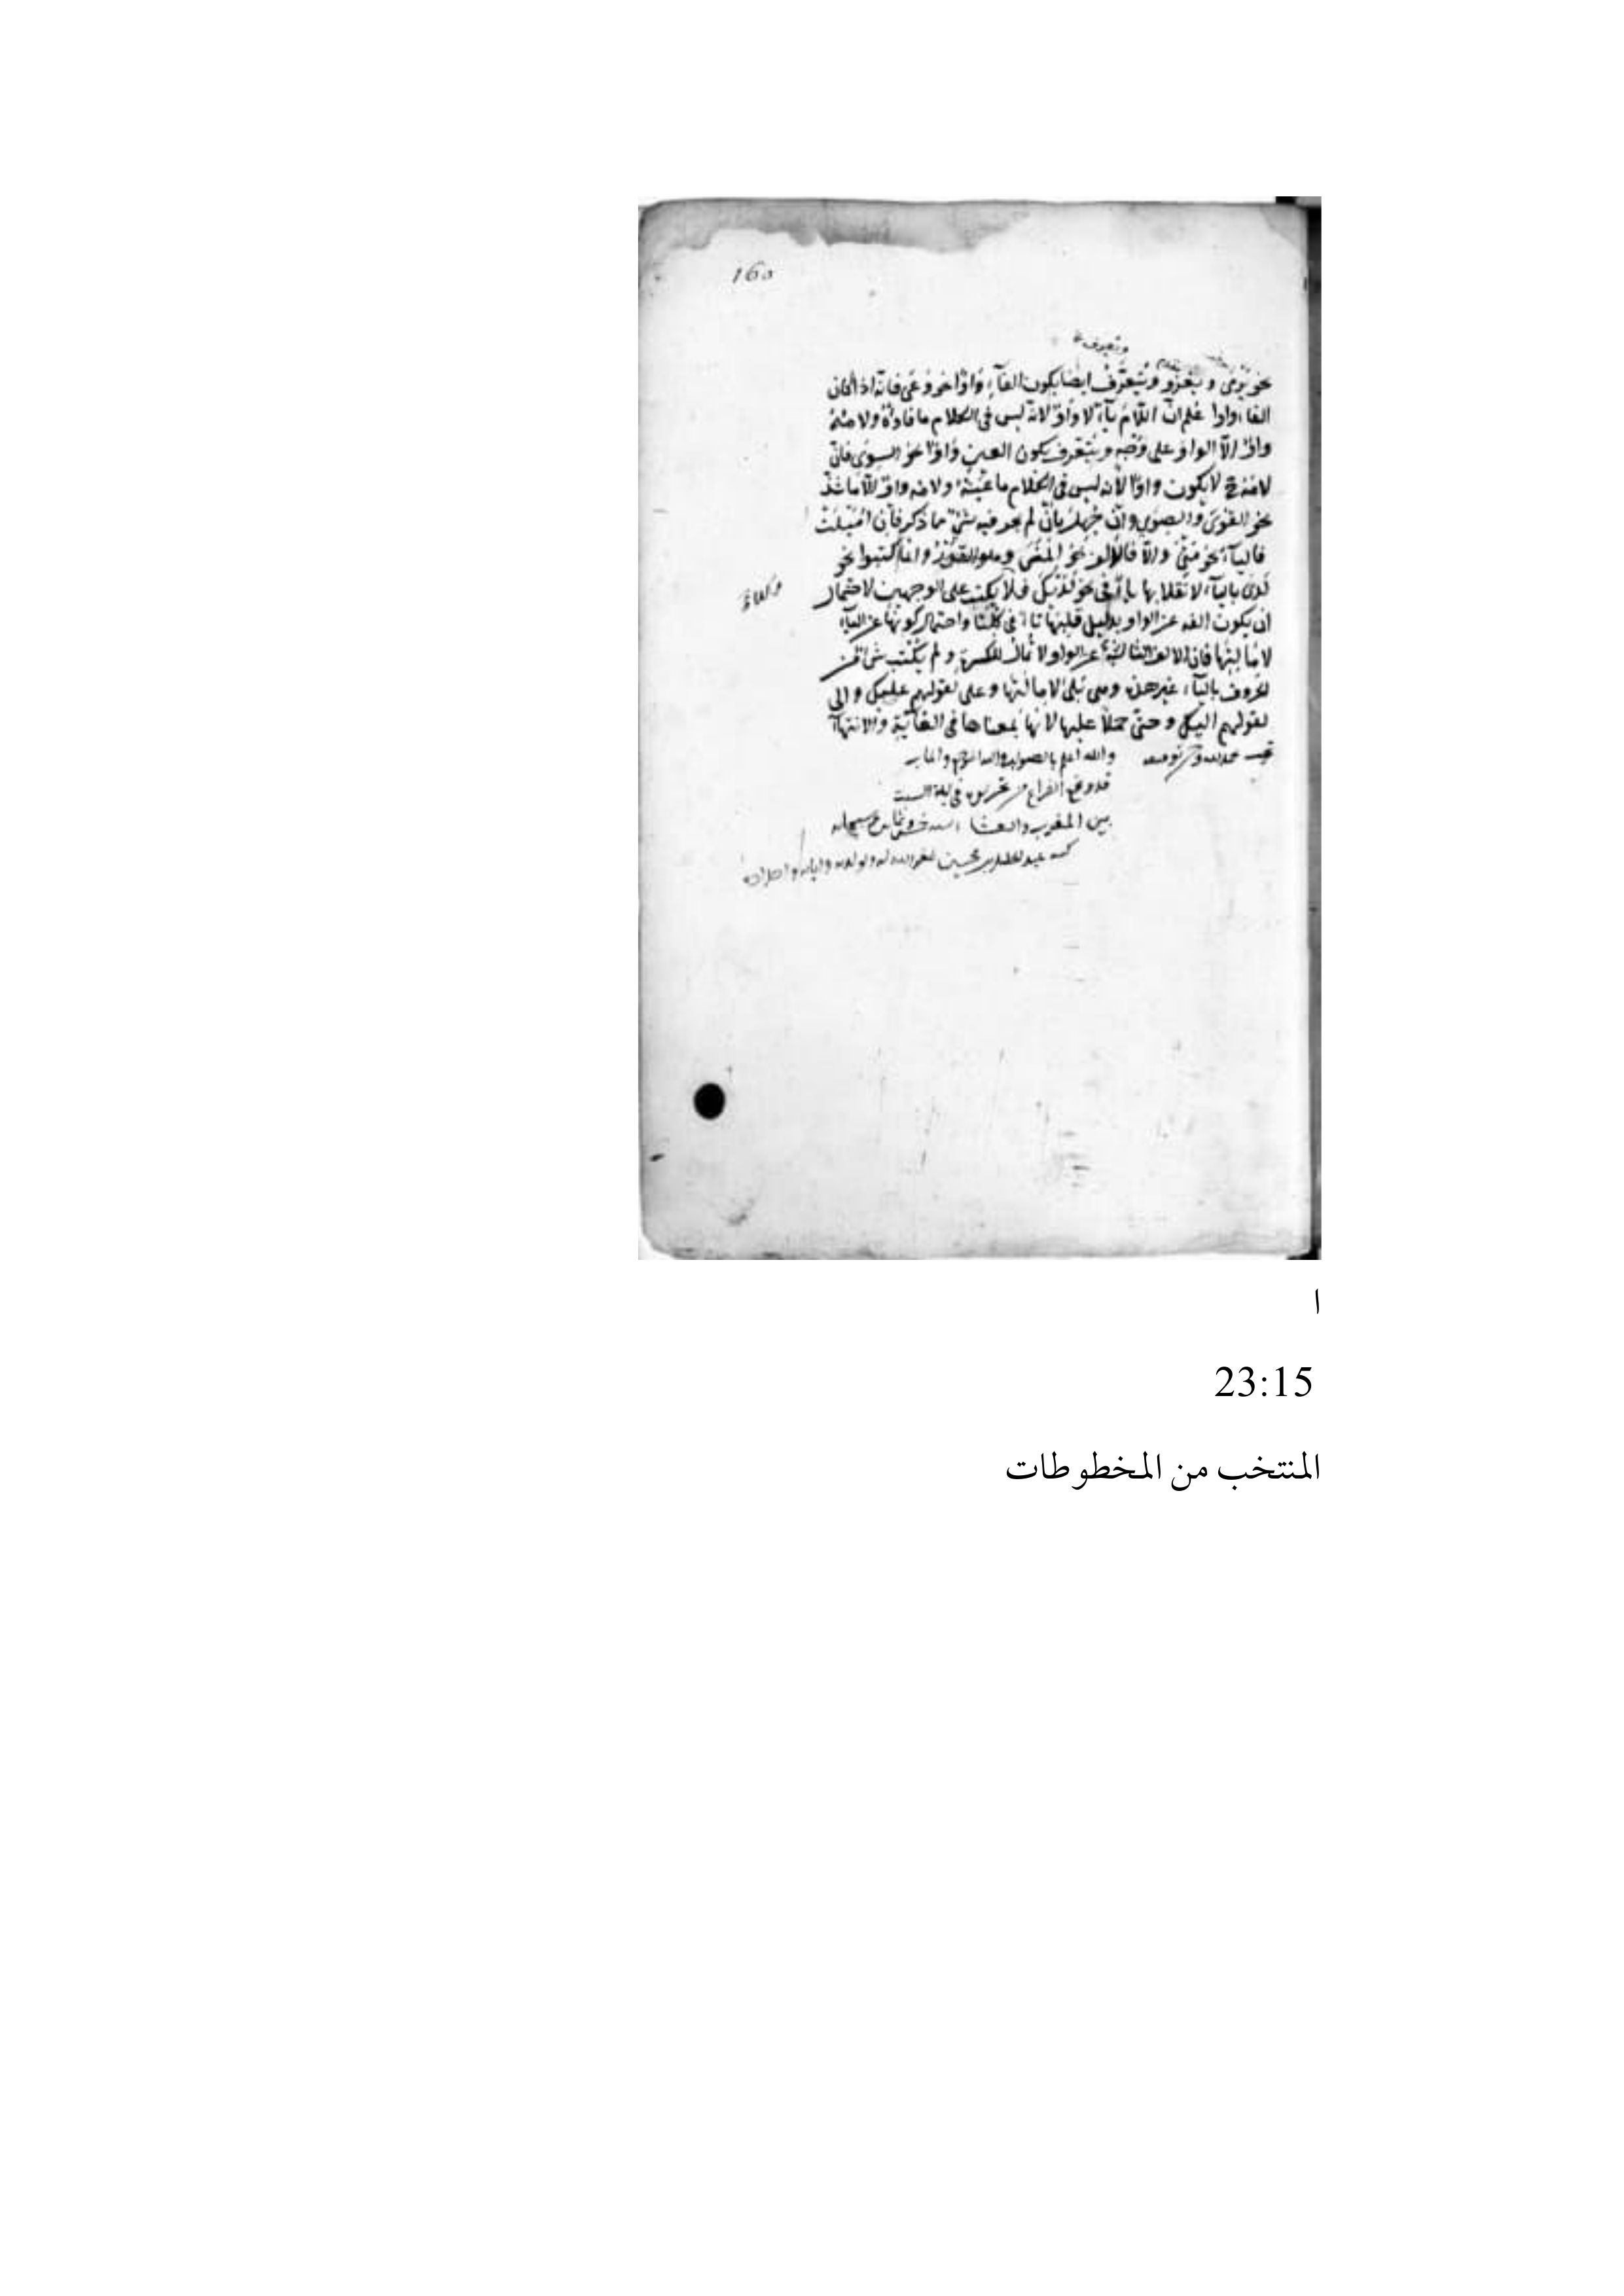 160
وتعرف
نحو يرمى ويغزو ويتعرف ايضا بكون الفآء واوا نحو وعى فانه اذا كان
الفاء واوا علم ان اللام يآء لا واو لانه ليس فى الكلام ما فاؤه ولامه
واو الا الواو على وجه ويتعرف بكون العين واوا نحو السوى فان
لامه ح لا يكون واوا لانه ليس فى الكلام ما عينه ولامه واو الا ما شذ
نحو القوى والصوى وان جهل بان لم يعرف فيه شئ مما ذكر فان اميلت
فاليآء نحو متى والا فالالف نحو المنى وانما كتبوا نحو
لدى باليآء لانقلابها يآء فى نحو لديك فلا يكتب على الوجهين لاحتمال
ان يكون الفه عن الواو بدليل قلبها تاء فى كلتا واحتمال كونها عن اليآء
لامالتها فان الالف الثالثة عن الواو لا تمال للكسرة ولم يكتب شئ من
الحروف باليآء غير هذه وهى بلى لامالتها وعلى لقولهم عليك والى
لقولهم اليك وحتى حملا عليها لانها بمعناها فى الغآية والانتهآء
والله اعلم بالصواب واليه المرجع والمآب
قد وقع الفراغ من تحريره فى ليلة السبت
بين المغرب والعشاء
غفر الله له ولوالديه
ا
23:15
المنتخب من المخطوطات